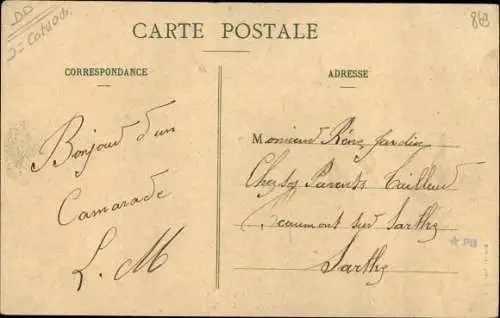 DD
869
CARTE POSTALE
CORRESPONDANCE
ADRESSE
Bonjour d'un
Camarade
L. M
Monsieur Réné Jardin
Chez ses Parents Tailleur
Beaumont sur Sarthe
Sarthe
★ PB